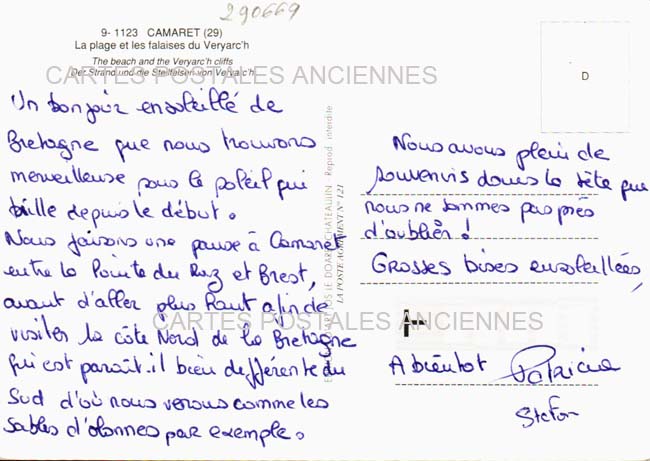 290669
9- 1123 CAMARET (29)
La plage et les falaises du Veryarc'h
The beach and the Veryarc'h cliffs
Der Strand und die Steilfelsen von Veryarc'h
CARTES POSTALES ANCIENNES
D
Un bonjour ensoleillé de
Bretagne que nous trouvons
merveilleuse sous le soleil qui
brille depuis le début.
Nous faisons une pause à Camaret
entre la Pointe du Raz et Brest,
avant d'aller plus haut afin de
visiter la côte Nord de la Bretagne
qui est paraît.il bien différente du
Sud d'où nous venons comme les
Sables d'olonnes par exemple.
LE DOARÉ CHATEAULIN Reprod interdite
LA POSTE AGRÉMENT N° 121
Nous avons plein de
souvenirs dans la tête que
nous ne sommes pas près
d'oublier!
Grosses bises ensoleillées,
CARTES POSTALES ANCIENNES
A bientôt Patricia
Stefan